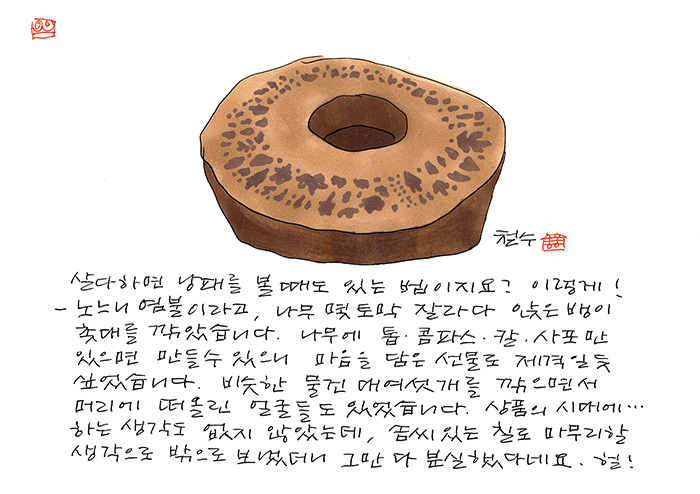 철수
살다하면 낭패를 볼때도 있는 법이지요? 이렇게!
- 노느니 염불이라고, 나무 몇토막 잘라다 얏은밤이
촛대를 깎았습니다. 나무에 톱·콤파스·칼·사포만
있으면 만들수 있으니 마음을 담은 선물로 제격일듯
싶었습니다. 비슷한 물건 대여섯개를 깎으면서
머리에 떠올린 얼굴들도 있었습니다. 상품의 시대에…
하는 생각도 없지 않았는데, 솜씨있는 칠로 마무리할
생각으로 밖으로 보냈더니 그만 다 분실했다네요. 헐!